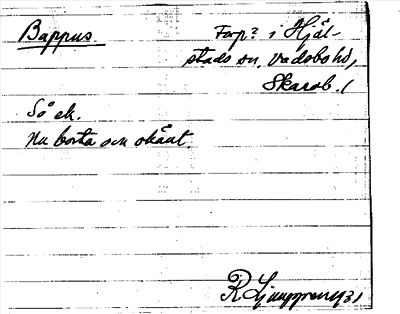 Bappus.
Torp? i Hjäl-
stads sn, Vadsbo hd,
Skarab. l
Så ek.
Nu borta och okänt.
R Ljunggren 1931